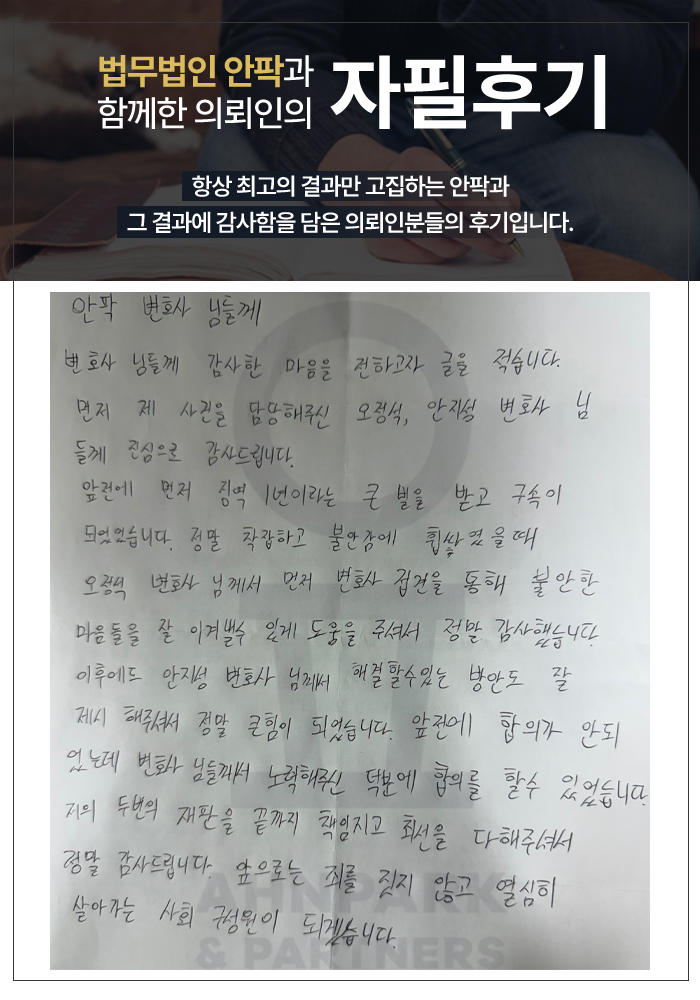 법무법인 안팍과
함께한 의뢰인의
자필후기
항상 최고의 결과만 고집하는 안팍과
그 결과에 감사함을 담은 의뢰인분들의 후기입니다.
안팍 변호사 님들께
변호사 님들께 감사한 마음을 전하고자 글을 적습니다.
먼저 제 사건을 담당해주신 오정석, 안지성 변호사 님
들께 진심으로 감사드립니다.
앞전에 먼저 징역 1년이라는 큰 벌을 받고 구속이
되었었습니다. 정말 착잡하고 불안감에 휩싸였을때
오정석 변호사 님께서 먼저 변호사 접견을 통해 불안한
마음들을 잘 이겨낼수 있게 도움을 주셔서 정말 감사했습니다.
이후에도 안지성 변호사 님께서 해결할수있는 방안도 잘
제시 해주셔서 정말 큰힘이 되었습니다. 앞전에 합의가 안되
었는데 변호사 님들께서 노력해주신 덕분에 합의를 할수 있었습니다.
저의 두번의 재판을 끝까지 책임지고 최선을 다해주셔서
정말 감사드립니다. 앞으로는 죄를 짓지 않고 열심히
살아가는 사회 구성원이 되겠습니다.
AHNPARK
& PARTNERS